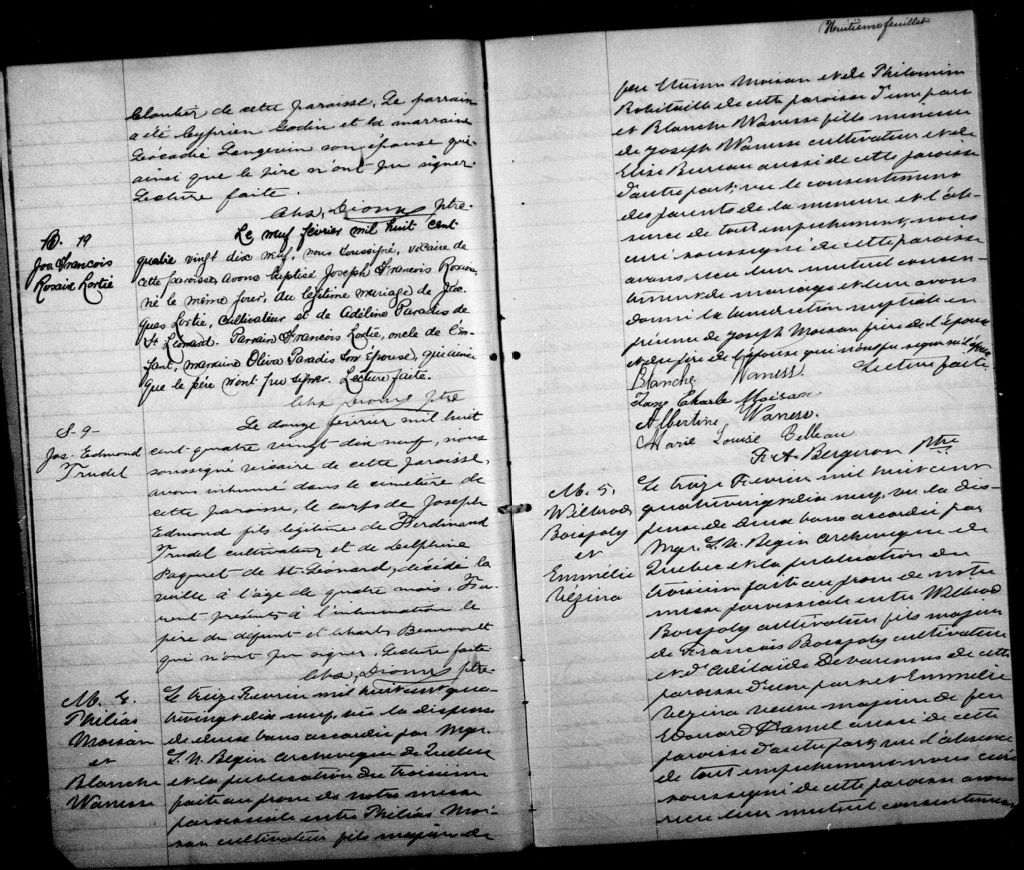 Cloutier de cette paroisse. Le parrain
a été Cyprien Godin et la marraine
Léocadie Langevin son épouse qui
ainsi que le père n'ont pu signer.
Lecture faite.
Chs, Dionne ptre
B. 19
Jos. François
Rosaire Lortie
Le neuf février mil huit cent
quatre vingt dix neuf, nous soussigné, vicaire de
cette paroisse, avons baptisé Joseph François Rosaire,
né le même jour, du légitime mariage de Jac
ques Lortie, cultivateur et de Adélina Paradis de
St Léonard. Parrain François Lortie, oncle de l'en-
fant, marraine Oliva Paradis son épouse, qui ainsi
que le père n'ont pu signer. Lecture faite.
Chs Dionne ptre
S-9-
Jos. Edmond
Trudel
Le douze février mil huit
cent quatre vingt dix neuf, nous
soussigné vicaire de cette paroisse,
avons inhumé dans le cimetière de
cette paroisse, le corps de Joseph
Edmond fils légitime de Ferdinand
Trudel cultivateur et de Delphine
Paquet de St. Léonard, décédé la
veille à l'âge de quatre mois. Fu-
rent présents à l'inhumation le
père du défunt et Charles Beaumont
qui n'ont pu signer. Lecture faite
Chs, Dionne ptre
M. 4.
Philias
Moisan
et
Blanche
Wanesse
Le treize Fevrier mil huit cent qua-
trevingt dix neuf, vu la dispense
de deux bans accordée par Mgr.
L. N. Begin archeveque de Quebec
et la publication du troisieme
faite au prone de notre messe
paroissiale entre Philias Moi-
san cultivateur fils majeur de
Huitième feuillet
feu Moisan et de Philomène
Robitaille de cette paroisse d'une part
et Blanche Wanesse fille mineure
de Joseph Wanesse cultivateur et de
Elise Bureau aussi de cette paroisse
d'autre part; vu le consentement
des parents de la mineure et l'ab-
sence de tout empêchement, nous
curé soussigné de cette paroisse
avons recu leur mutuel consen-
tement de mariage et leur avons
donné la benediction nuptiale en
présence de Joseph Moisan frère de l'époux
et du père de l'épouse qui n'ont pu signer ni l'époux
Lecture faite.
Blanche Waness
Charle Moisan
Albertine Waness.
Marie Louise Belleau
F. A. Bergeron Ptre
M. 5.
Wilbrod
Boisjoly
et
Emmélie
Vézina
Le treize Fevrier mil huit cent
quatrevingt dix neuf, vu la dis-
pense de deux bans accordée par
Mgr. L. N. Begin archeveque de
Quebec et la publication du
troisieme faite au prone de notre
messe paroissiale entre Wilbrod
Boisjoly cultivateur fils majeur
de François Boisjoly cultivateur
et d'Adelaide Devarennes de cette
paroisse d'une part et Emmélie
Vezina veuve majeure de feu
Edouard Hamel aussi de cette
paroisse d'autre part; vu l'absence
de tout empechement nous curé
soussigné de cette paroisse avons
recu leur mutuel consentement